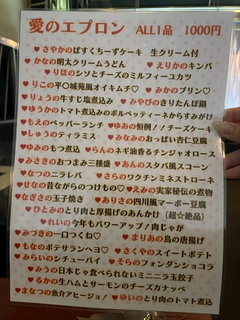 愛のエプロン ALL1品 1000円
♥さやかのばすくちーずケーキ 生クリーム付
♥かなの明太クリームうどん ♥えりかのキンパ
♥りほのシソとチーズのミルフィーユカツ
♥りこの平城苑風オイキムチ♡ ♥みかのプリン♡
♥りょうの牛すじ塩煮込み ♥みやびのきりたんぽ鍋
♥ゆうかのトマト煮込みのポルペッティーネからすみがけ
♥もえのペッパーランチ ♥ゆあの恒例!!チーズケーキ
♥しゅうのティラミス ♥みなみのおっぱい杏仁豆腐
♥ゆみのもつ煮込 ♥らんのネギ油香るチンジャオロース
♥みさきのおつまみ三種盛 ♥あんのスタバ風スコーン
♥なつのニラレバ ♥さらのワクチンミネストローネ
♥せなの昔ながらのつけもの♡ ♥えみの実家秘伝の煮物
♥なぎさの玉子焼き ♥ありさの四川風マーボー豆腐
♥ひとみのとり肉と厚揚げのあんかけ（超☆絶品）
♥れいの今年もパワーアップ！肉じゃが
♥みづきの一口つくね♡ ♥まりあの鳥の唐揚げ
♥ももなのポテサランヘヨ♡ ♥さくやのスイートポテト
♥みらいのシチューパイ ♥そらのフォンダンショコラ
♥みうの日本じゃ食べられないミニニラ玉餃子
♥るかの生ハムとサーモンのチーズカナッペ
♥まなつの魚介アヒージョ！ ♥ゆいのとり肉のトマト煮込